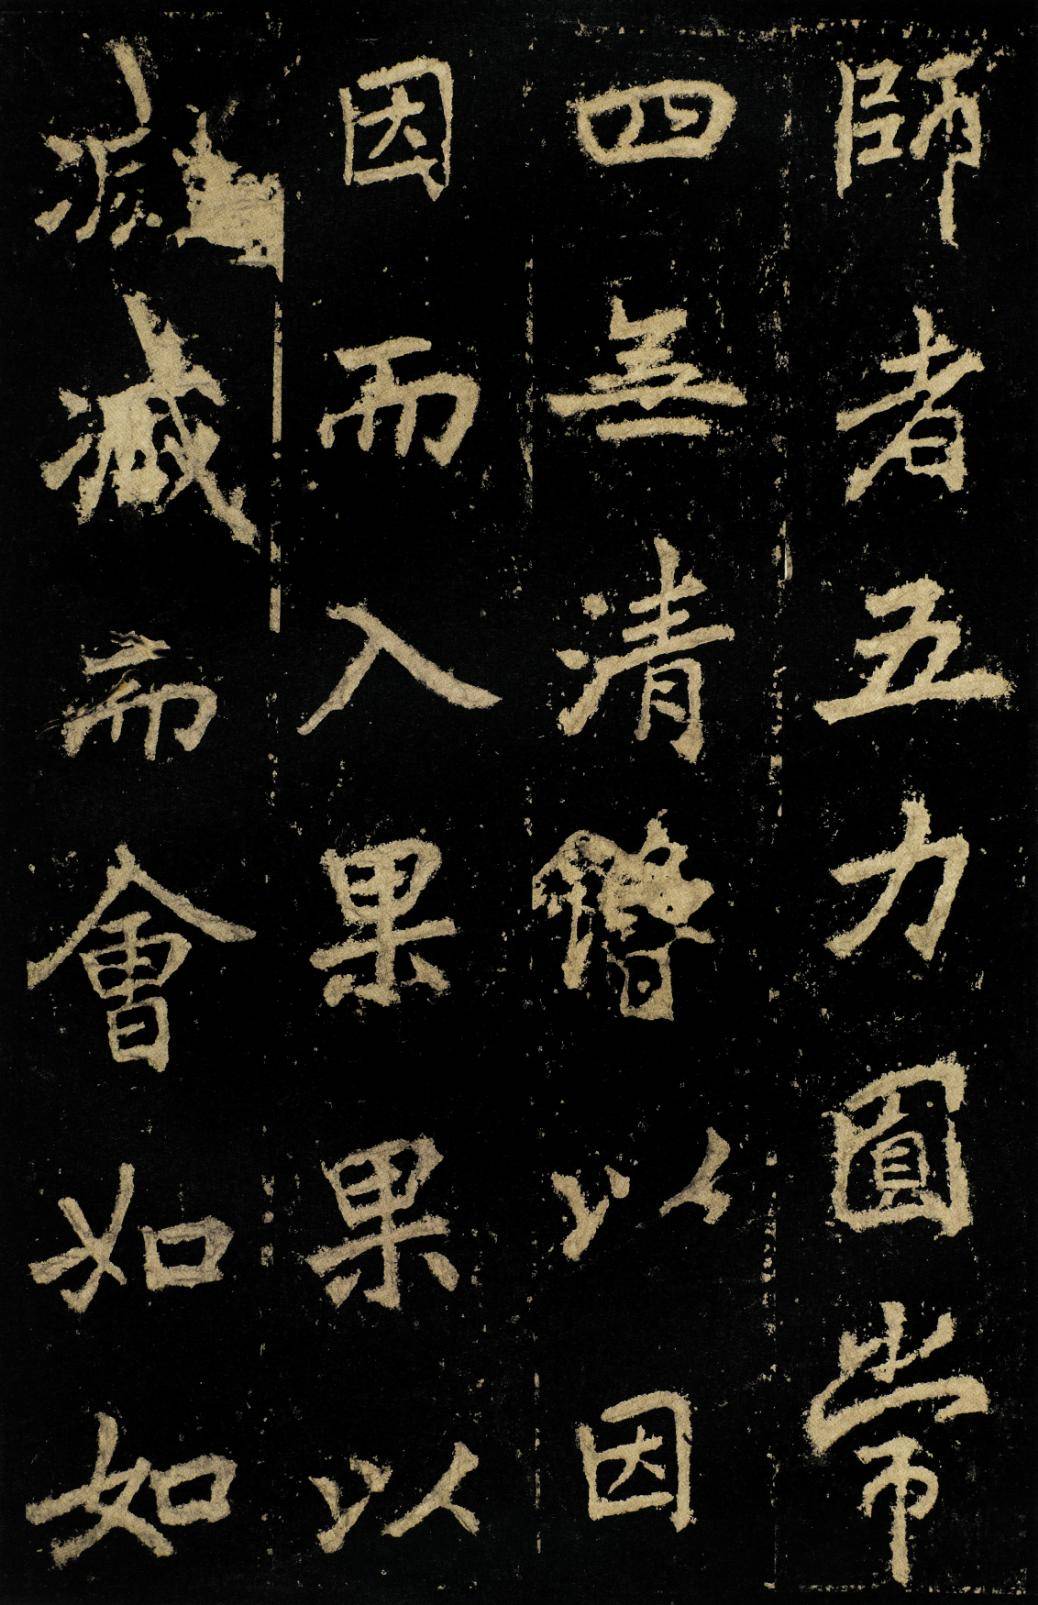 師者五力圓常
四無清僧以因
因而入果果以
滅滅而會如如